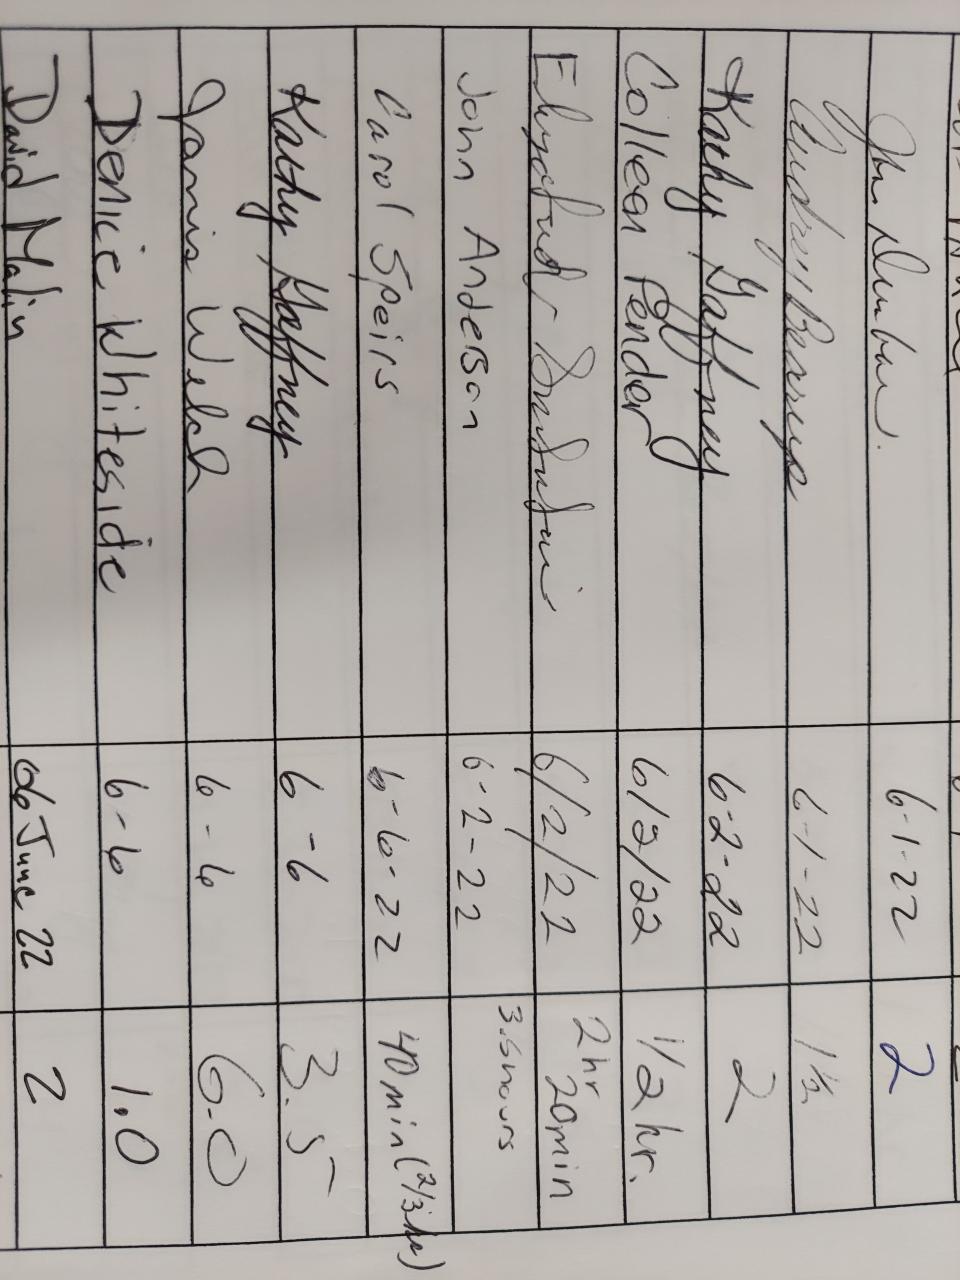 John Dunbar. 6-1-22 2
Audrey 6-1-22 1 1/2
Kathy Gaffney 6-2-22 2
Colleen Pender 6/2/22 1/2 hr.
6/2/22 2 hr 20min
John Anderson 6-2-22 3.5hours
Carol Speirs 6-6-22 40min (2/3 hr)
Kathy Gaffney 6-6 3.5
Janis Welch 6-6 6.0
Denice Whiteside 6-6 1.0
David Malin 06 June 22 2